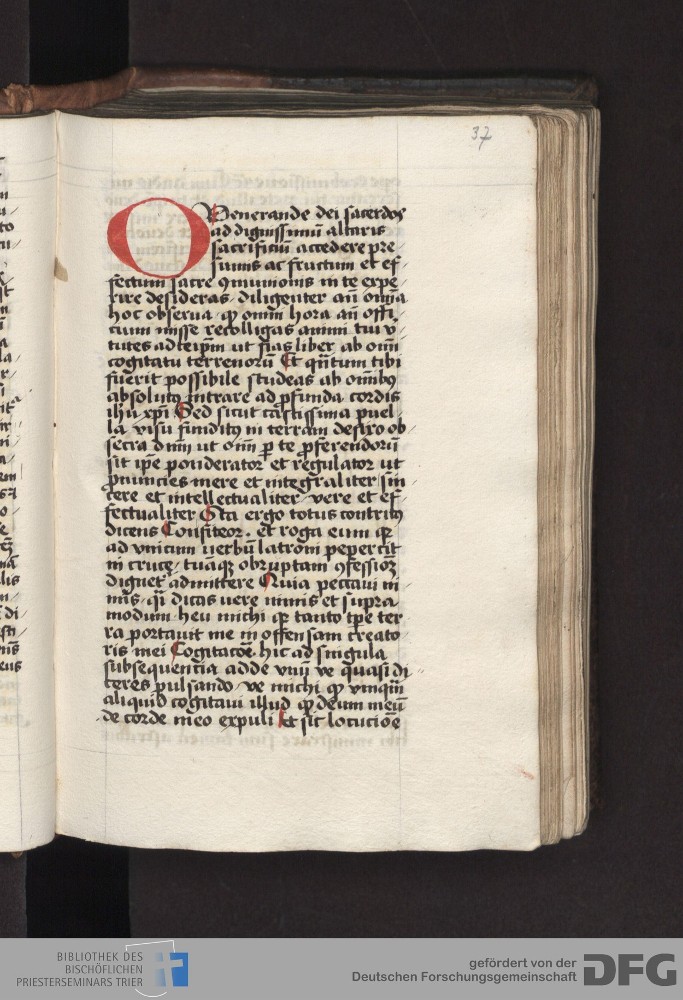 37
O Venerande dei sacerdos
ad dignissimū altaris
sacrificiū accedere pre/
sumis ac fructum et ef/
fectum sacre ꝯmunionis in te expe/
rire desideras diligenter an̄ om̄ia
hoc observa ꝙ om̄i hora an̄ offi/
cium misse recolligas animi tui v̓/
tutes ad teip̄m ut fias liber ab om̄i
cogitatu terrenorū Et qn̄tum tibi
fuerit possibile studeas ab omībꝰ
absolutꝰ intrare ad ꝓfunda cordis
ih̄u xp̄i Sed sicut castissima puel/
la visu funditꝰ in terram defixo ob/
secra dn̄m ut om̄i ꝑ te ꝓferendorū
sit ip̄e ponderator et regulator ut
ꝓnuncies mere et integraliter sin/
cere et intellectualiter vere et ef/
fectualiter Sta ergo totus contritꝰ
dicens Confiteor. et roga eum ꝙ
ad vnicum verbū latroni pepercit
in cruce tuāqꝫ
dignet᷑ admittere Quia peccavi ni/
mis. qͥ dicas vere nimis et supra
modum heu michi ꝙ tanto tp̄e ter/
ra portauit me in offensam creato/
ris mei Cogitacōe. hic ad singula
subsequencia adde vnū ve quasi di/
ceres pulsando ve michi ꝙ vmqͣm
aliquid cogitaui illud ꝙ deum meū
de corde meo expuli Et sit locucōe
BIBLIOTHEK DES
BISCHÖFLICHEN
PRIESTERSEMINARS TRIER
gefördert von der
Deutschen Forschungsgemeinschaft
DFG